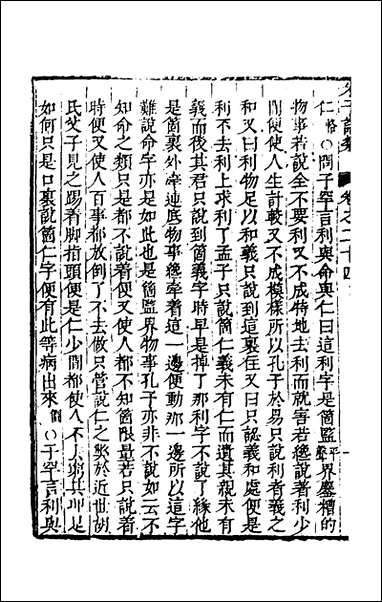 朱子語類 卷之三十四
仁 恪 〇問子罕言利與命與仁曰這利字是箇監 平聲 界鏖糟的
物事若說全不要利又不成特地去利而就害若纔說著利少
間便使人生計較又不成模樣所以孔子於易只說利者義之
和又曰利物足以和義只說到這裏住又曰只認義和處便是
利不去利上求利了孟子只說箇仁義未有仁而遺其親未有
義而後其君只說到箇義字時早是掉了那利字不說了緣他
是箇裏外牽連底物事纔牽着這一邊便動那一邊所以這字
難說命字亦是如此也是箇監界物事孔子亦非不說如云不
知命之類只是都不說着便又使人都不知箇限量若只說着
時便又使人百事都放倒了不去做只管說仁之弊於近世胡
氏父子見之踢着脚指頭便是仁少間都使人不去窮其所以
如何只是口裏說箇仁字便有此等病出來 僩 〇子罕言利與